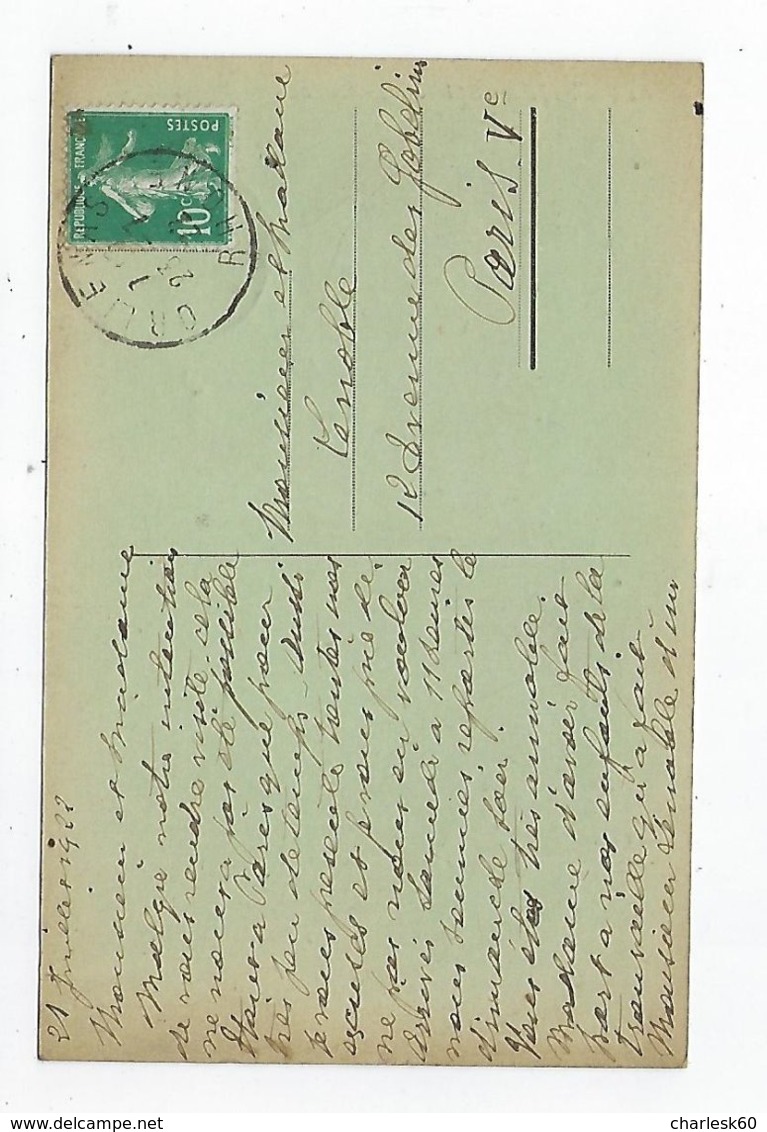 21 Juillet 1922
Monsieur et Madame
Malgré notre intention
de vous rendre visite cela
ne nous a pas été possible
Paris que pour
très peu de temps. Aussi
je vous présente toutes nos
excuses et vous prie de
ne pas nous en vouloir
Arrivés Samedi à 11 heures
nous sommes repartis le
dimanche soir.
Vous êtes très aimable
Madame d'avoir fait
part à vos enfants de la
trouvaille qu'a fait
Monsieur Lenoble d'un
Monsieur et Madame
Lenoble
12 Avenue des Gobelins
Paris. Ve
REPUBLIQUE FRANÇAISE
POSTES
10c
ORLIENAS
RHONE
charlesk60